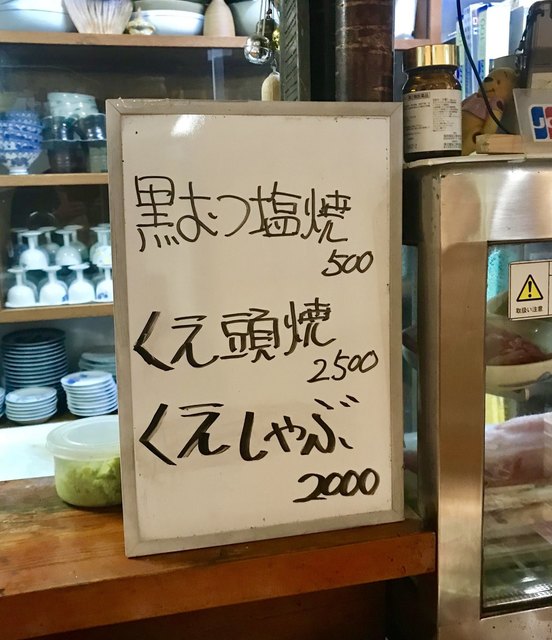 黒むつ塩焼
500
くえ頭焼
2500
くえしゃぶ
2000
取扱い注意